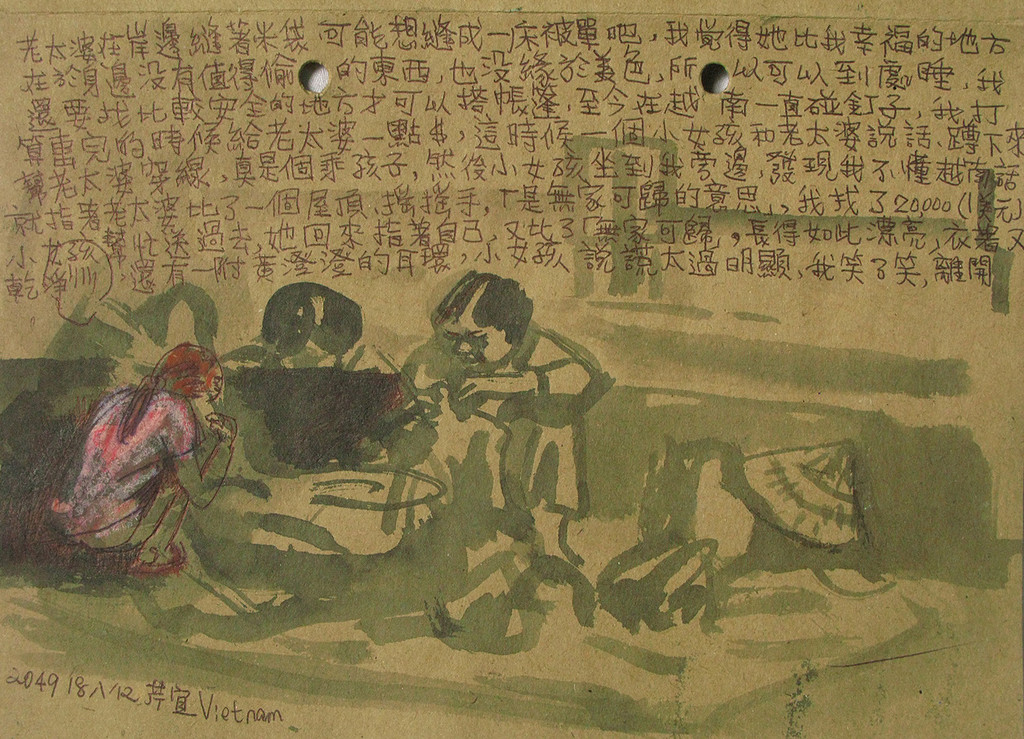 老太婆在岸邊縫著米袋,可能想縫成一床被單吧,我覺得她比我幸福的地方
在於身邊沒有值得偷的東西,也沒緣於美色,所以可以到處睡,我
還要找比較安全的地方才可以搭帳篷,至今在越南一直碰釘子,我打
算畫完的時候給老太婆一點$,這時候一個小女孩和老太婆說話、蹲下來
幫老太婆穿線,真是個乖孩子,然後小女孩坐到我旁邊,發現我不懂越南話
就指著老太婆比了一個屋頂、搖搖手,是無家可歸的意思,我找了20000(1美元)
小女孩幫忙送過去,她回來指著自己,又比了「無家可歸」,長得如此漂亮,衣著又
乾淨,還有一附黃澄澄的耳環,小女孩說謊太過明顯,我笑了笑,離開
。
2049 18/1/12 宜 Vietnam